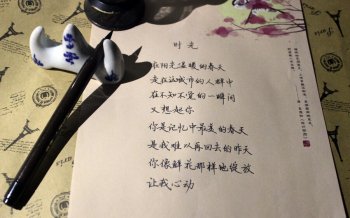 时光
在阳光温暖的春天
走在这城市的人群中
在不知不觉的一瞬间
又想起你
你是记忆中最美的春天
是我难以再回去的昨天
你像鲜花那样地绽放
让我心动